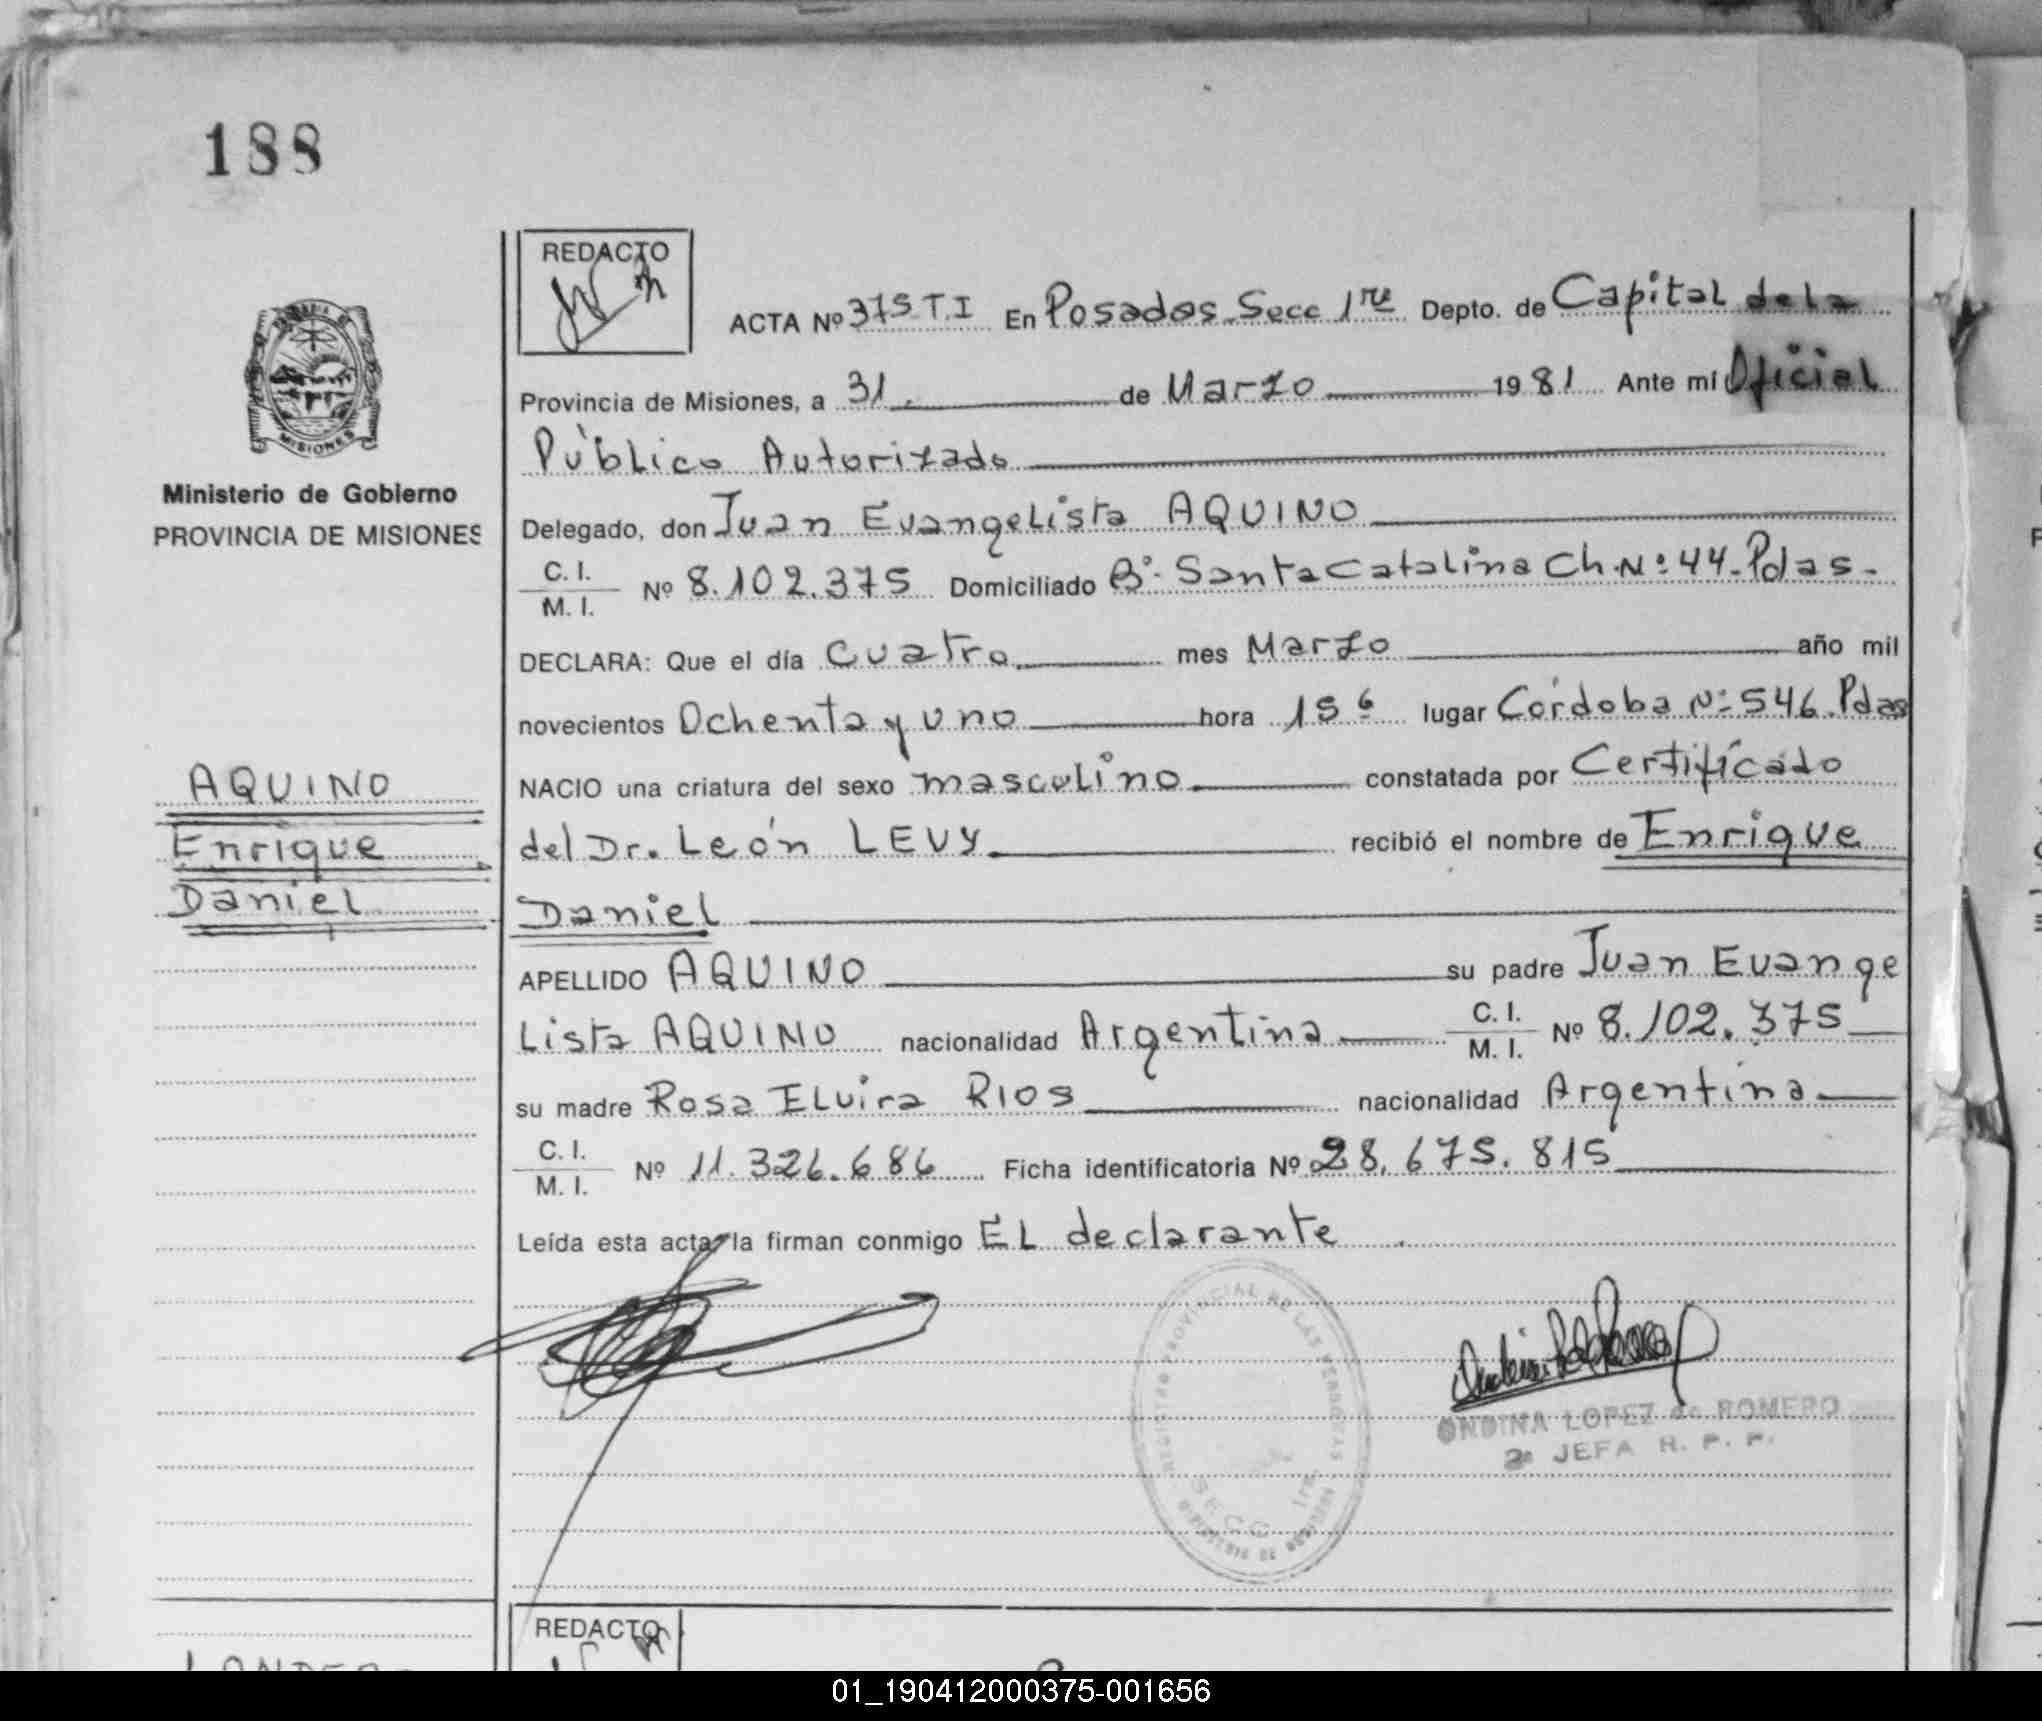 188
REDACTO
ACTA Nº 375 T.I En Posadas Secc 1ra Depto. de Capital de la
Provincia de Misiones, a 31 de Marzo 1981 Ante mí Oficial
Público Autorizado
Delegado, don Juan Evangelista AQUINO
C. I.
M. I. Nº 8.102.375 Domiciliado Bº Santa Catalina Ch. Nº 44 - Pdas -
DECLARA: Que el día Cuatro mes Marzo año mil
novecientos Ochenta y uno hora 15 6 lugar Córdoba Nº 546 Pdas
NACIO una criatura del sexo masculino constatada por Certificado
del Dr. León LEVY recibió el nombre de Enrique
Daniel
APELLIDO AQUINO su padre Juan Evange
Lista AQUINO nacionalidad Argentina C. I.
M. I. Nº 8.102.375
su madre Rosa ELvira RIOS nacionalidad Argentina
C. I.
M. I. Nº 11.326.686 Ficha identificatoria Nº 28.675.815
Leída esta acta, la firman conmigo EL declarante
ONDINA LOPEZ de ROMERO
2ª JEFA R. P. P.
REGISTRO PROVINCIAL DE LAS PERSONAS
SECC 1ra
MISIONES
Ministerio de Gobierno
PROVINCIA DE MISIONES
AQUINO
Enrique
Daniel
REDACTO
01_190412000375-001656